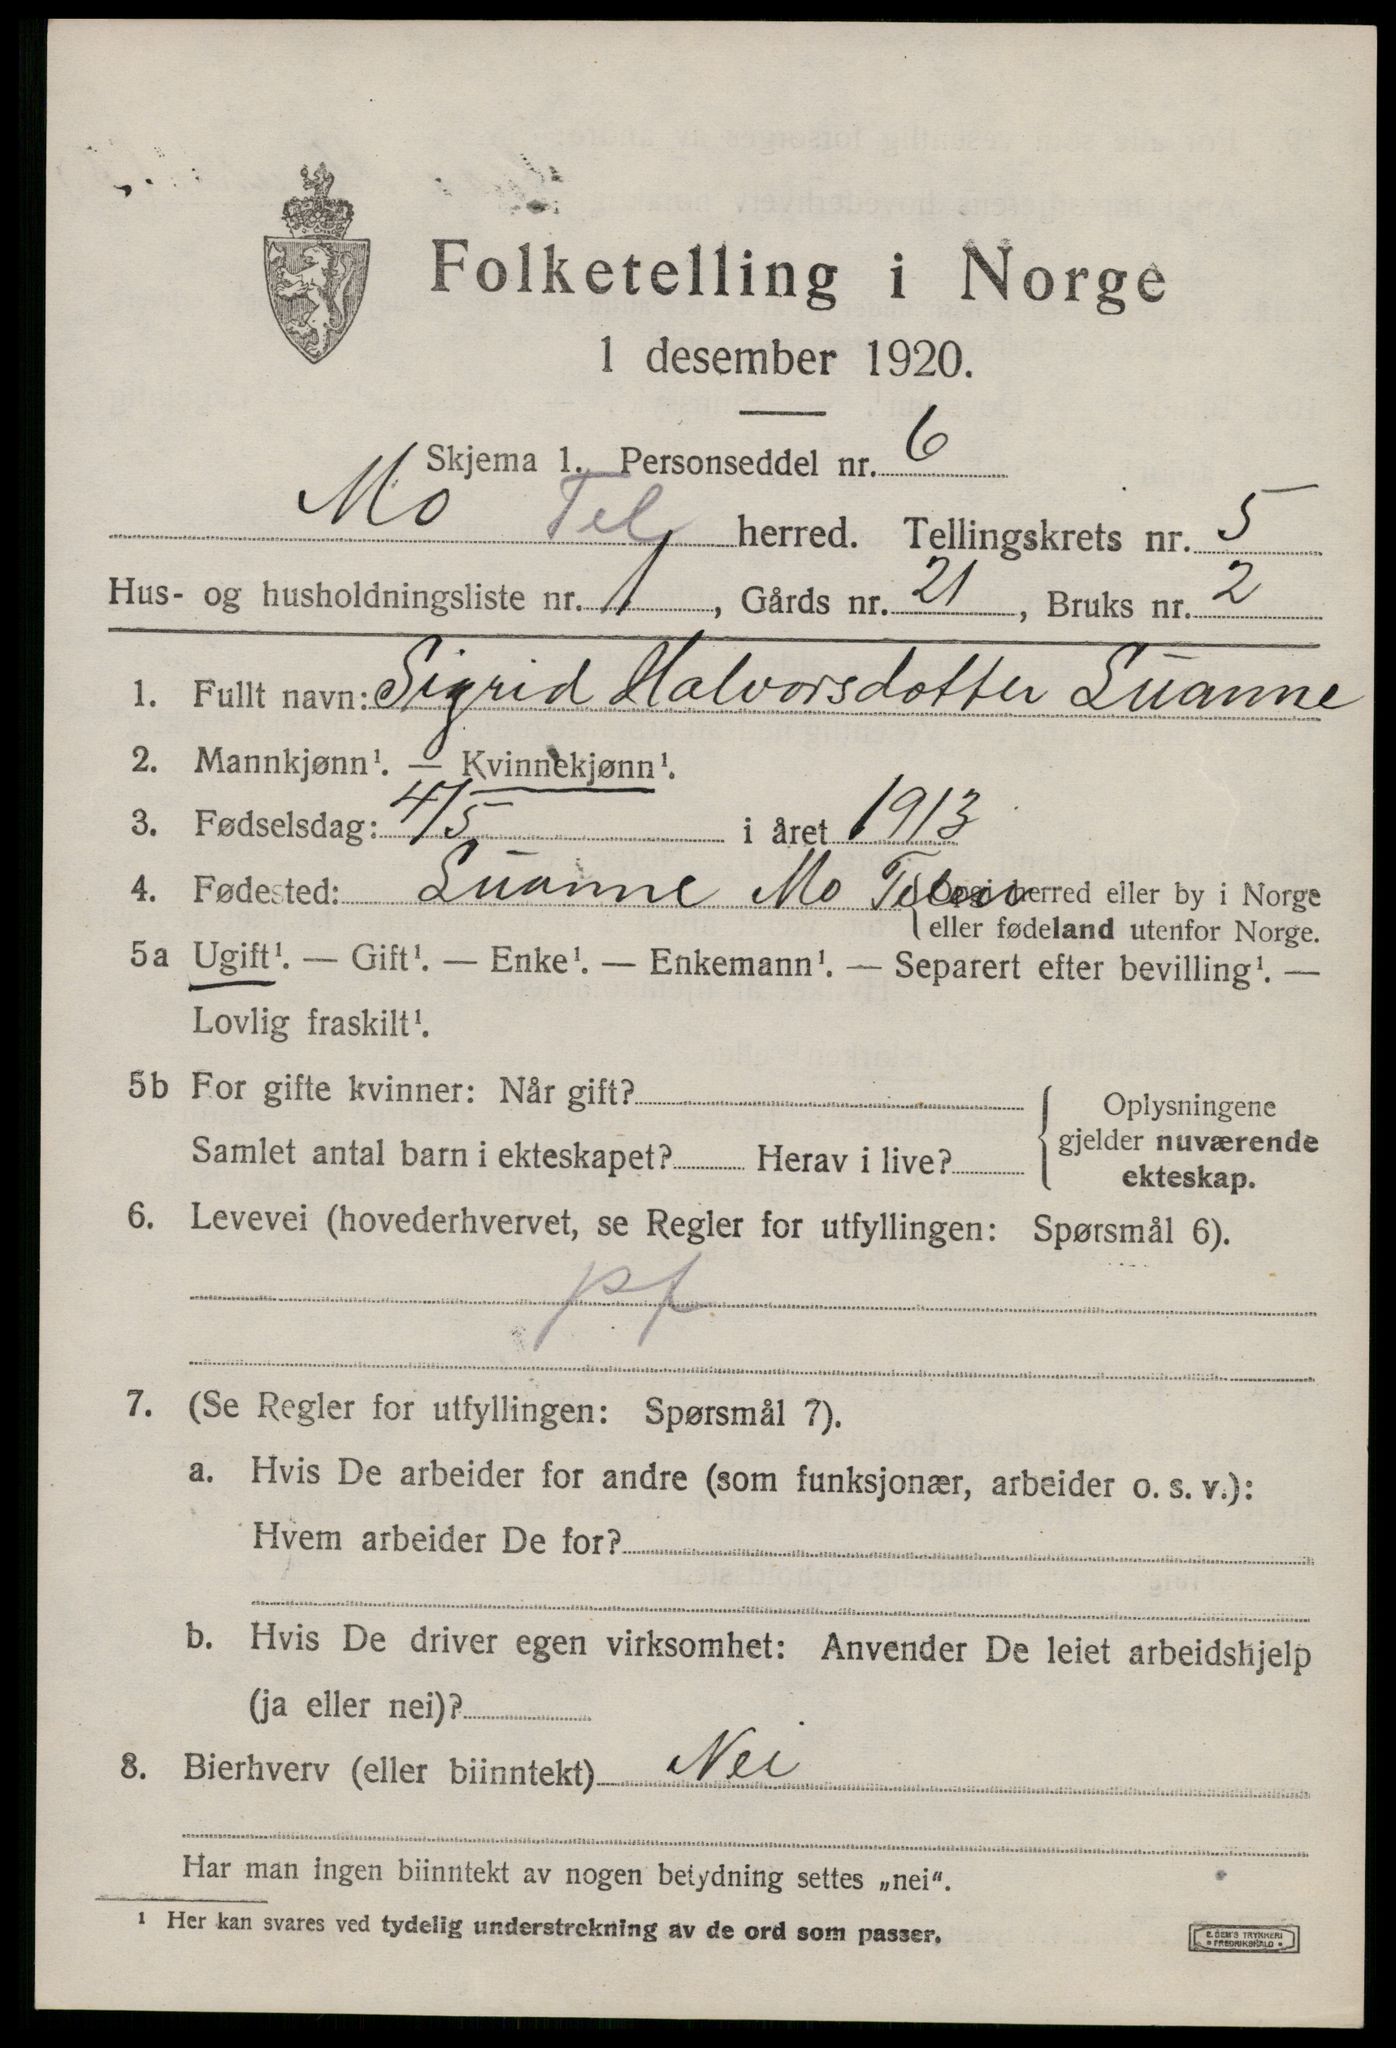 Folketelling i Norge
1 desember 1920.
Skjema 1. Personseddel nr. 6
Mo Tel herred. Tellingskrets nr. 5
Hus- og husholdningsliste nr. 1, Gårds nr. 21, Bruks nr. 2
1. Fullt navn: Sigrid Halvorsdotter Luanne
2. Mannkjønn¹. — Kvinnekjønn¹.
3. Fødselsdag: 4/5 i året 1913
4. Fødested: Luanne Mo Telem {Opgi herred eller by i Norge
eller fødeland utenfor Norge.
5a Ugift¹. — Gift¹. — Enke¹. — Enkemann¹. — Separert efter bevilling¹. —
Lovlig fraskilt¹.
5b For gifte kvinner: Når gift?
Samlet antal barn i ekteskapet? Herav i live?
Oplysningene
gjelder nuværende
ekteskap.
6. Levevei (hovederhvervet, se Regler for utfyllingen: Spørsmål 6).
pf
7. (Se Regler for utfyllingen: Spørsmål 7).
a. Hvis De arbeider for andre (som funksjonær, arbeider o. s. v.):
Hvem arbeider De for?
b. Hvis De driver egen virksomhet: Anvender De leiet arbeidshjelp
(ja eller nei)?
8. Bierhverv (eller biinntekt) Nei
Har man ingen biinntekt av nogen betydning settes „nei“.
¹ Her kan svares ved tydelig understrekning av de ord som passer.
E. SEM'S TRYKKERI
FREDRIKSHALD